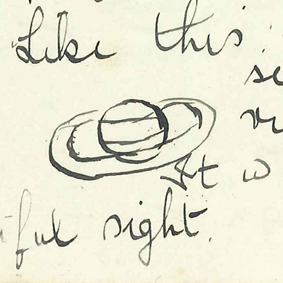 Like this
It w
ful sight.